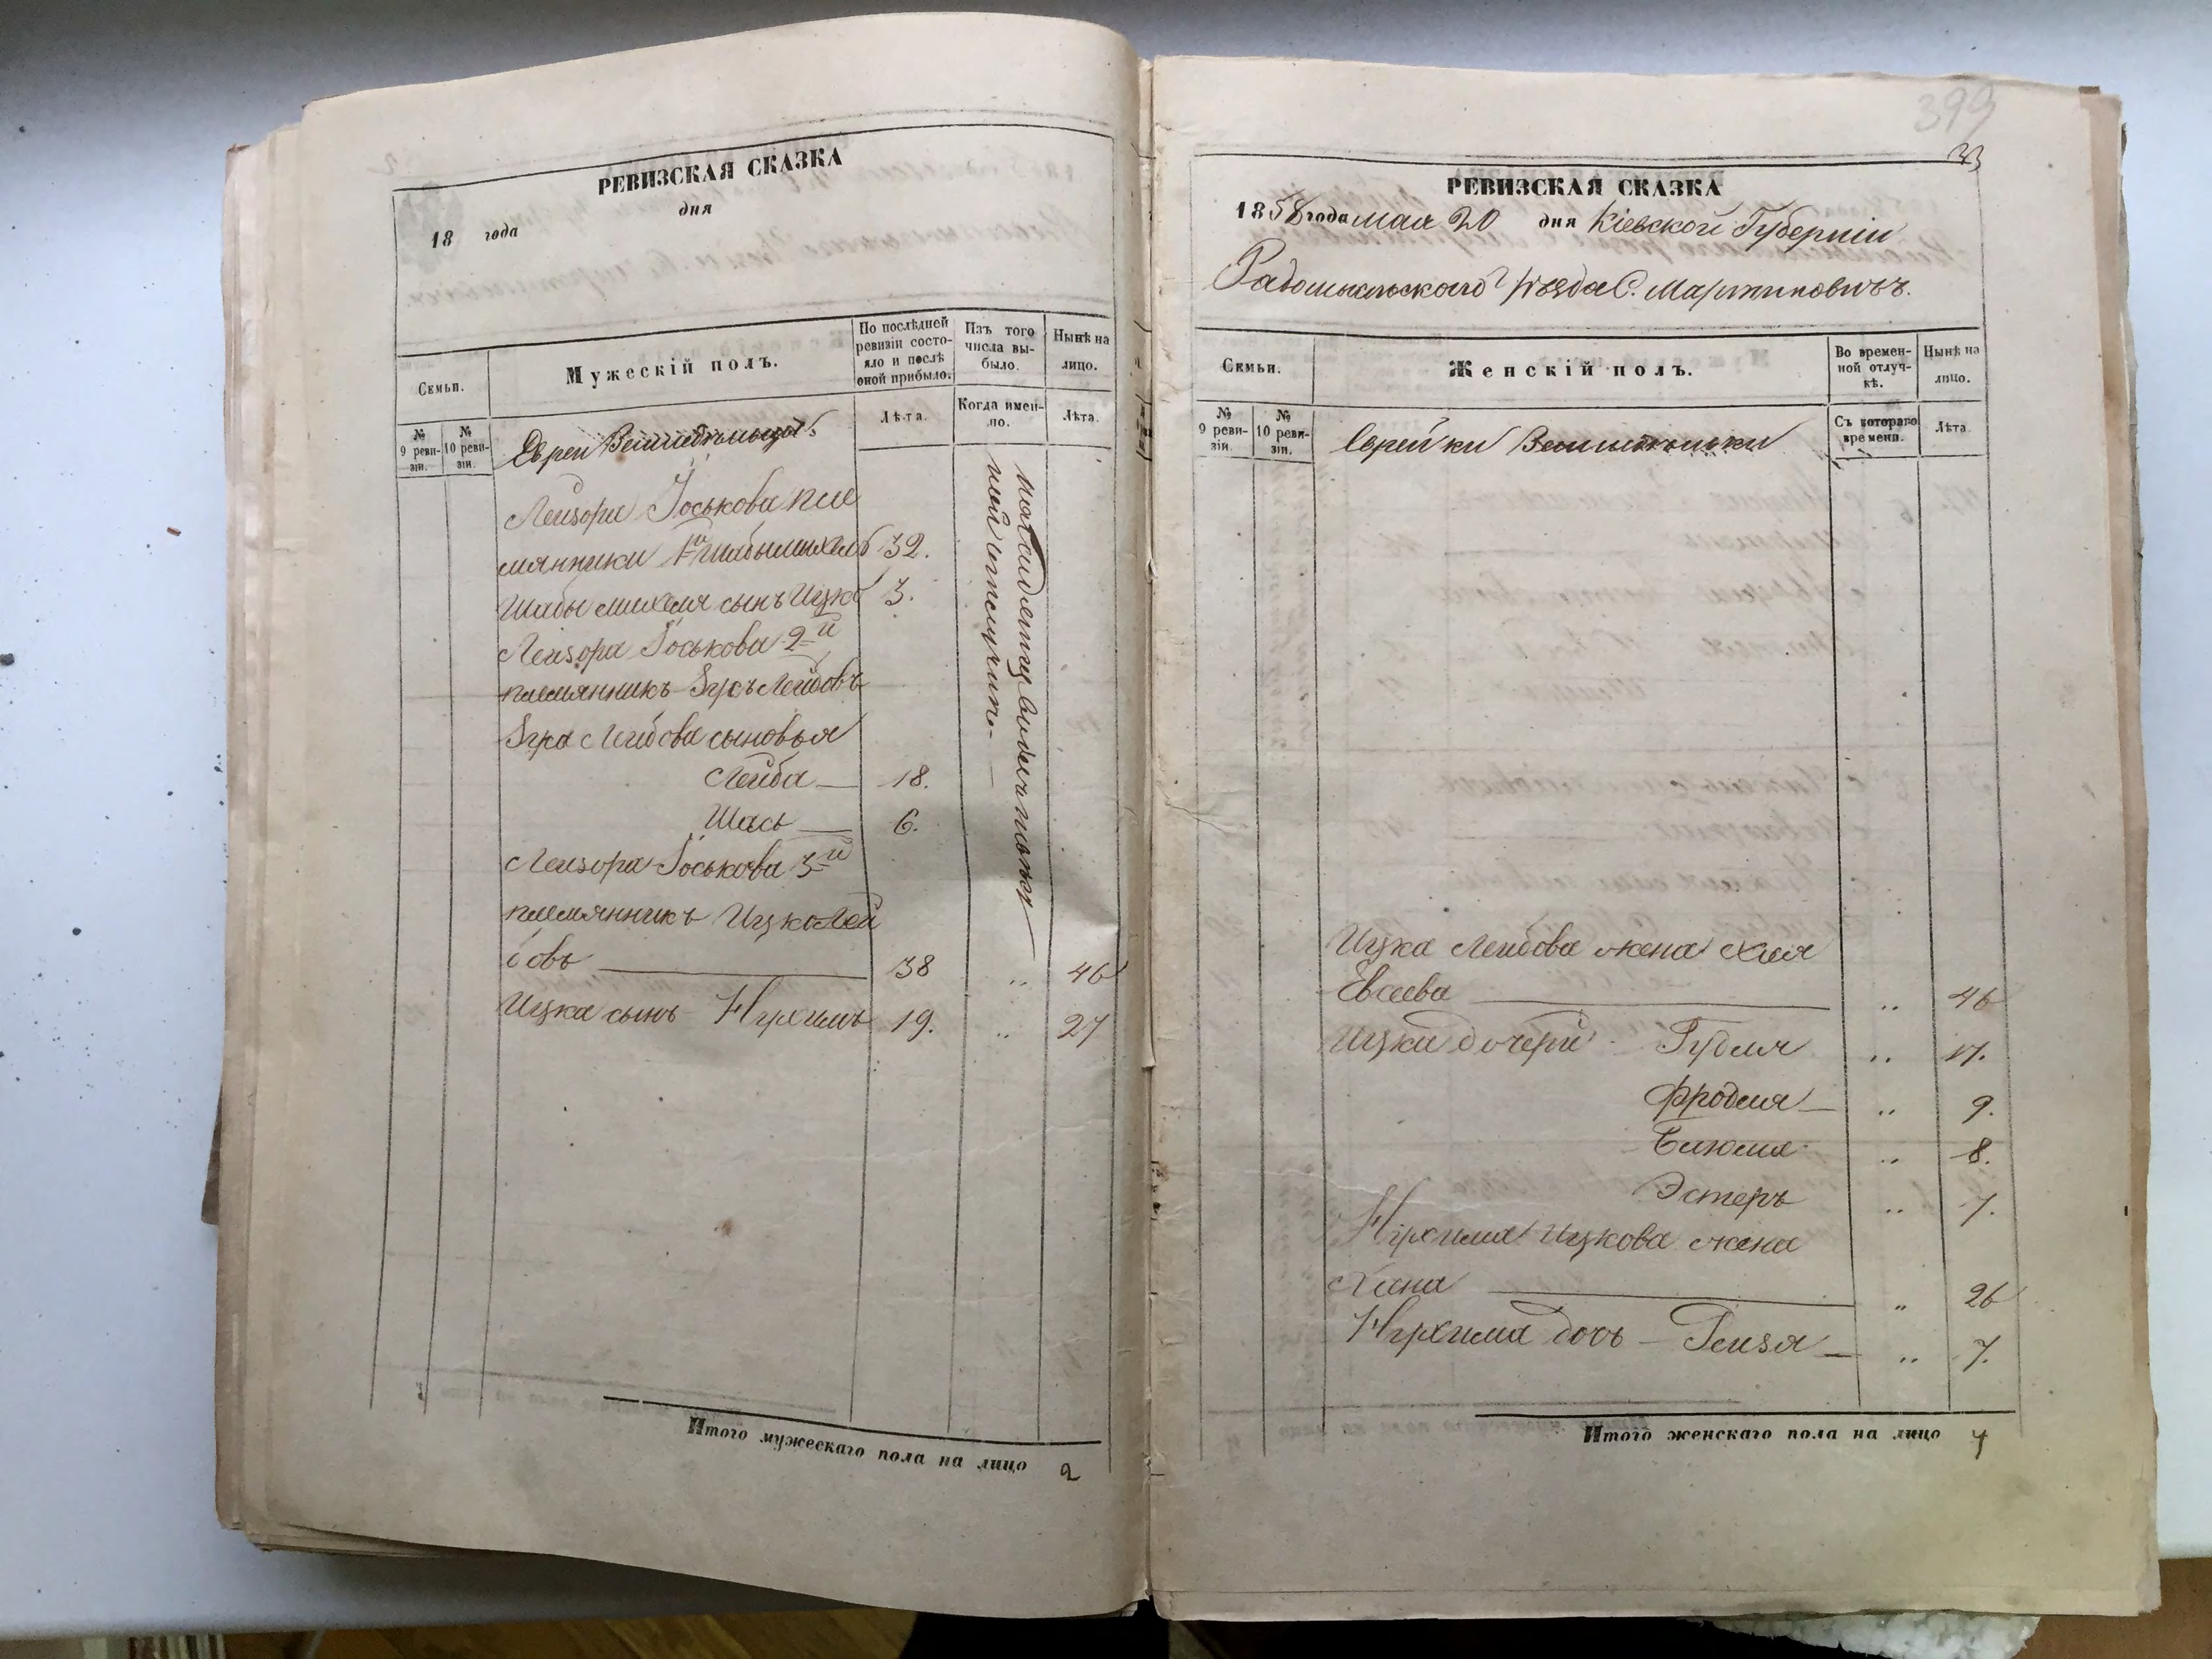 РЕВИЗСКАЯ СКАЗКА
дня
18 года
Семьи.
Мужескій полъ.
По послѣдней ревизіи состояло и послѣ оной прибыло.
Изъ того числа выбыло.
Нынѣ на лицо.
№ 9 ревизіи.
№ 10 ревизіи.
Лѣта.
Когда именно.
Лѣта.
Евреи
Лейзора Іоськова пле
мянники 1й 32.
сынъ Ицко 3.
Лейзора Іоськова 2й
племянникъ Лейбовъ
Лейбова сыновья
Лейба — 18.
6.
Лейзора Іоськова 3й
племянникъ Ицко Лей
бовъ — 38 „ 46
Ицка сынъ Нухимъ 19. „ 27
Итого мужескаго пола на лицо 2
399
33
РЕВИЗСКАЯ СКАЗКА
1858 года мая 20 дня Кіевской Губерніи
Радомысльского уѣзда С. Мартиновичъ.
Семьи.
Женскій полъ.
Во временной отлучкѣ.
Нынѣ на лицо.
№ 9 ревизіи.
№ 10 ревизіи.
Съ котораго времени.
Лѣта.
Еврейки
Ицка Лейбова жена Хая
Евсеева — „ 46
Ицка дочери Гудля „ 17.
Фродля — „ 9.
„ 8.
Эстеръ „ 7.
Нухима Ицкова жена
Хана — „ 26
Нухима дочь — Гейзя — „ 7.
Итого женскаго пола на лицо 7